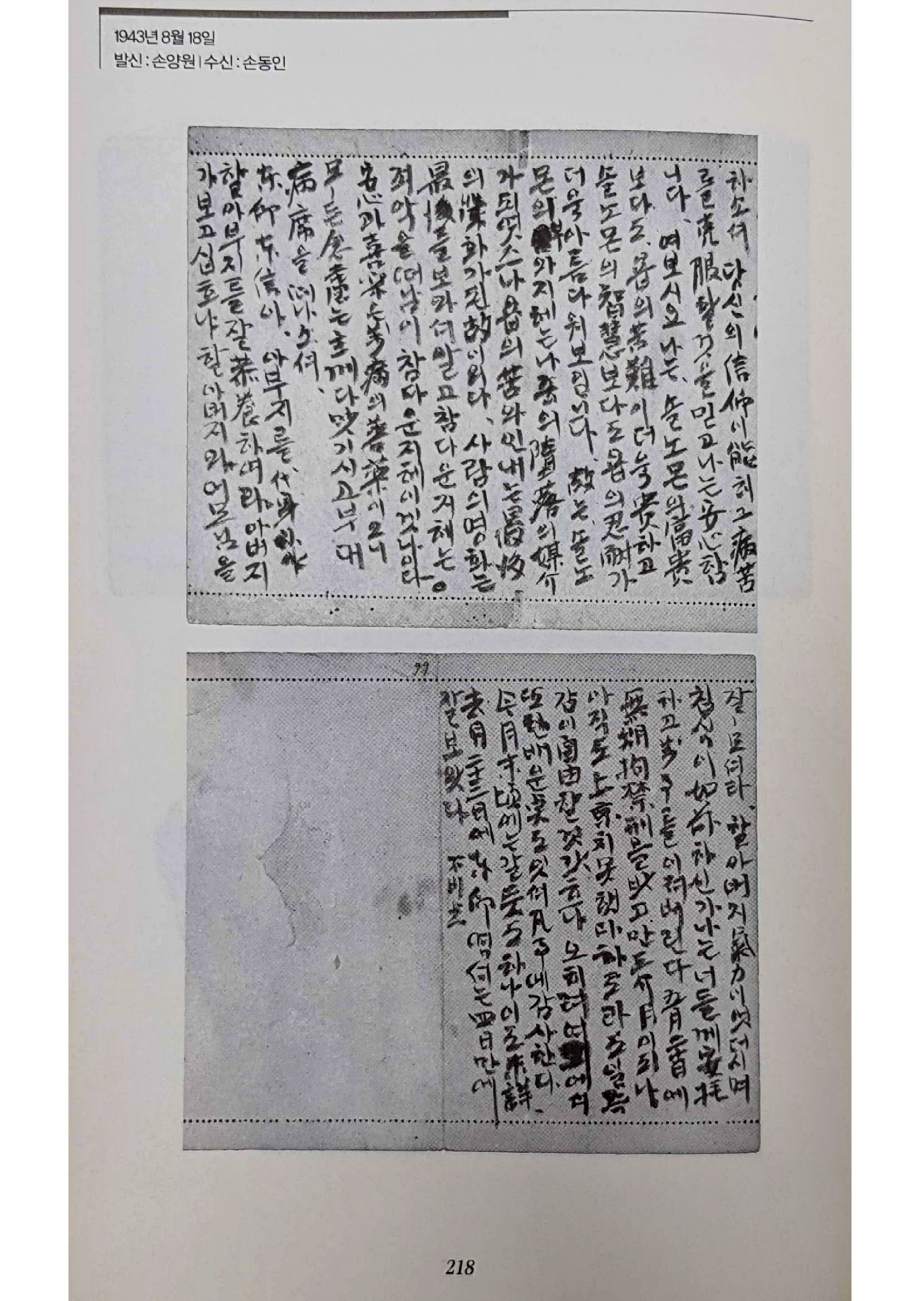 1943년 8월 18일
발신 : 손양원 | 수신 : 손동인
하소서 당신의 信仰이 能히 그 病苦
를 虎服할 것을 믿고 나는 安心합
니다. 여보시오 나는 솔노몬의 富貴
보다도 욥의 苦難이 더욱 貴하고
솔노몬의 智慧보다도 욥의 忍耐가
더욱 아름다워 보입니다. 故는 솔노
몬의 와 지혜는 나종의 墮落의 媒介
가 되엿스나 욥의 苦와 인내는 最後
의 가 된 故이외다. 사람의 영화는
最後를 보와서 알고 참다운 지혜는
죄악을 떠남이 참다운 지혜이겟나이다
安心과 喜樂은 病의 善藥이오니
모든 念慮는 主께 다 맛기시고 부대
病席을 떠나소셔.
東仰 東信아. 아부지를 代
할아부지를 잘 恭養하여라 아버지
가 보고 십흐냐 할아버지와 어모님을
99
잘 모셔라. 할아버지 氣力이 엇더시며
침식이 如前하신가 나는 너들께 安托
하고 を 이저버린다 에
無期拘禁刑을 밧고 만 月이 되나
아직도 上京치 못햇다
갓이 自由 할 것 갓흐나 오히려 에서
또한 배운 것도 잇서 凡事에 감사한다.
今月末頃에는 갈 듯도 하나 이도 未詳.
去月 二十三日에 東仰 엽서는 四日만에
잘 보왓다. 不備
218